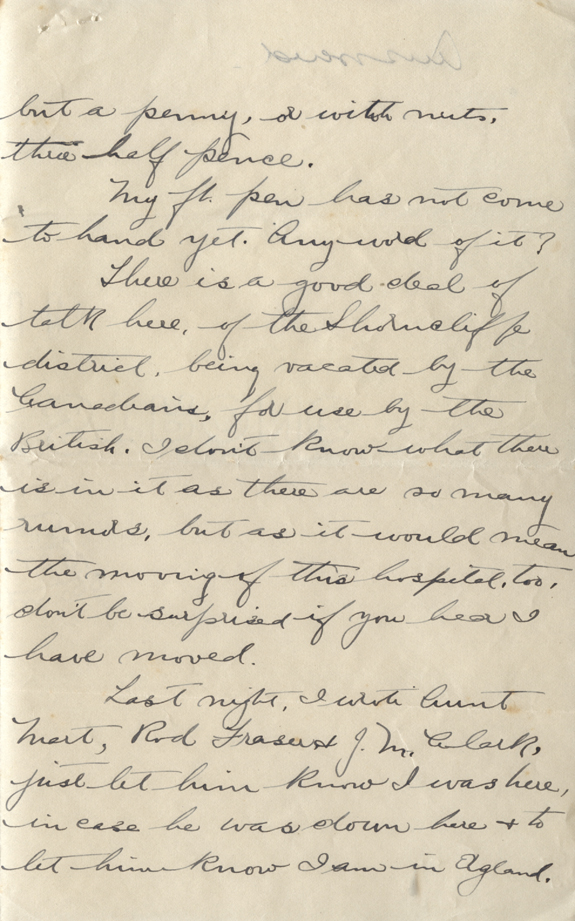 Answered
but a penny, or with nuts,
three half pence.
My ft. pen has not come
to hand yet. Any word of it?
There is a good deal of
talk here, of the Shorncliffe
district, being vacated by the
Canadians, for use by the
British. I don't know what there
is in it as there are so many
rumors, but as it would mean
the moving of this hospital, too,
don't be surprised if you hear I
have moved.
Last night, I wrote Aunt
Mart, Rod Fraser & J. M. Clark,
just let him know I was here,
in case he was down here & to
let him know I am in Egland.